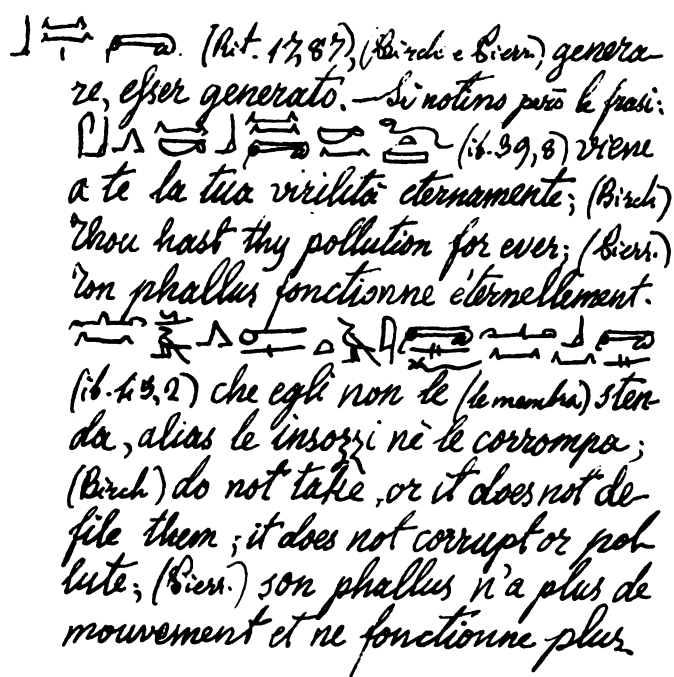 (Rit. 17, 87), (Birch e Pierr.) genera-
re, esser generato. — Si notino però le frasi:
(ib. 39, 8) viene
a te la tua virilità eternamente; (Birch)
Thou hast thy pollution for ever; (Pierr.)
Ton phallus fonctionne éternellement.
(ib. 43, 2) che egli non le (le membra) sten-
da, alias le insozzi nè le corrompa;
(Birch) do not take, or it does not de-
file them; it does not corrupt or pol-
lute; (Pierr.) son phallus n'a plus de
mouvement et ne fonctionne plus